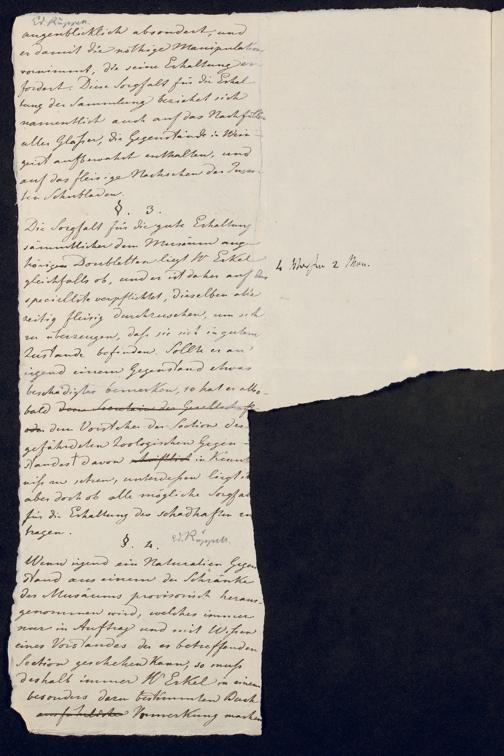 Ed. Rüppell.
augenblicklich absondert, und
er damit die nöthige Manipulation
vornimmt, die seine Erhaltung er-
fordert. Diese Sorgfalt für die Erhal-
tung der Sammlung bezieht sich
namentlich auch auf das Nachfüllen
aller Gläser, die Gegenstände in Wein-
geist aufbewahrt enthalten, und
auf das fleisige Nachsehen der Insec-
ten Schubladen.
§. 3.
Die Sorgfalt für die gute Erhaltung
sämmtlicher dem Musäum ange-
hörigen Doubletten liegt H Erkel
gleichfalls ob, und er ist daher auf das
speciellste verpflichtet, dieselben alle
zeitig fleisig durchzusehen, um sich
zu überzeugen, dass sie sich in gutem
Zustande befinden. Sollte er an
irgend einem Gegenstand etwas
beschädigtes bemerken, so hat er also-
bald dem Secretaire der Gesellschaft
oder den Vorsteher der Section des
gefährdeten Zoologischen Gegen-
standes davon schriftlich in Kennt
niss zu setzen, unterdessen liegt ihm
aber doch ob alle mögliche Sorgfalt
für die Erhaltung des schadhaften zu
tragen.
§. 4.
Ed. Rüppell.
Wenn irgend ein Naturalien Gegen
stand aus einem der Schränke
des Musäums provisorisch heraus-
genommen wird, welches immer
nur in Auftrag und mit Wissen
eines Vorstandes der es betreffenden
Section geschehen kann, so muss
deshalb immer H Erkel in einem
besonders dazu bestimmten Buch
ausführliche Vormerkung machen
4 Wochen 2 Mon.